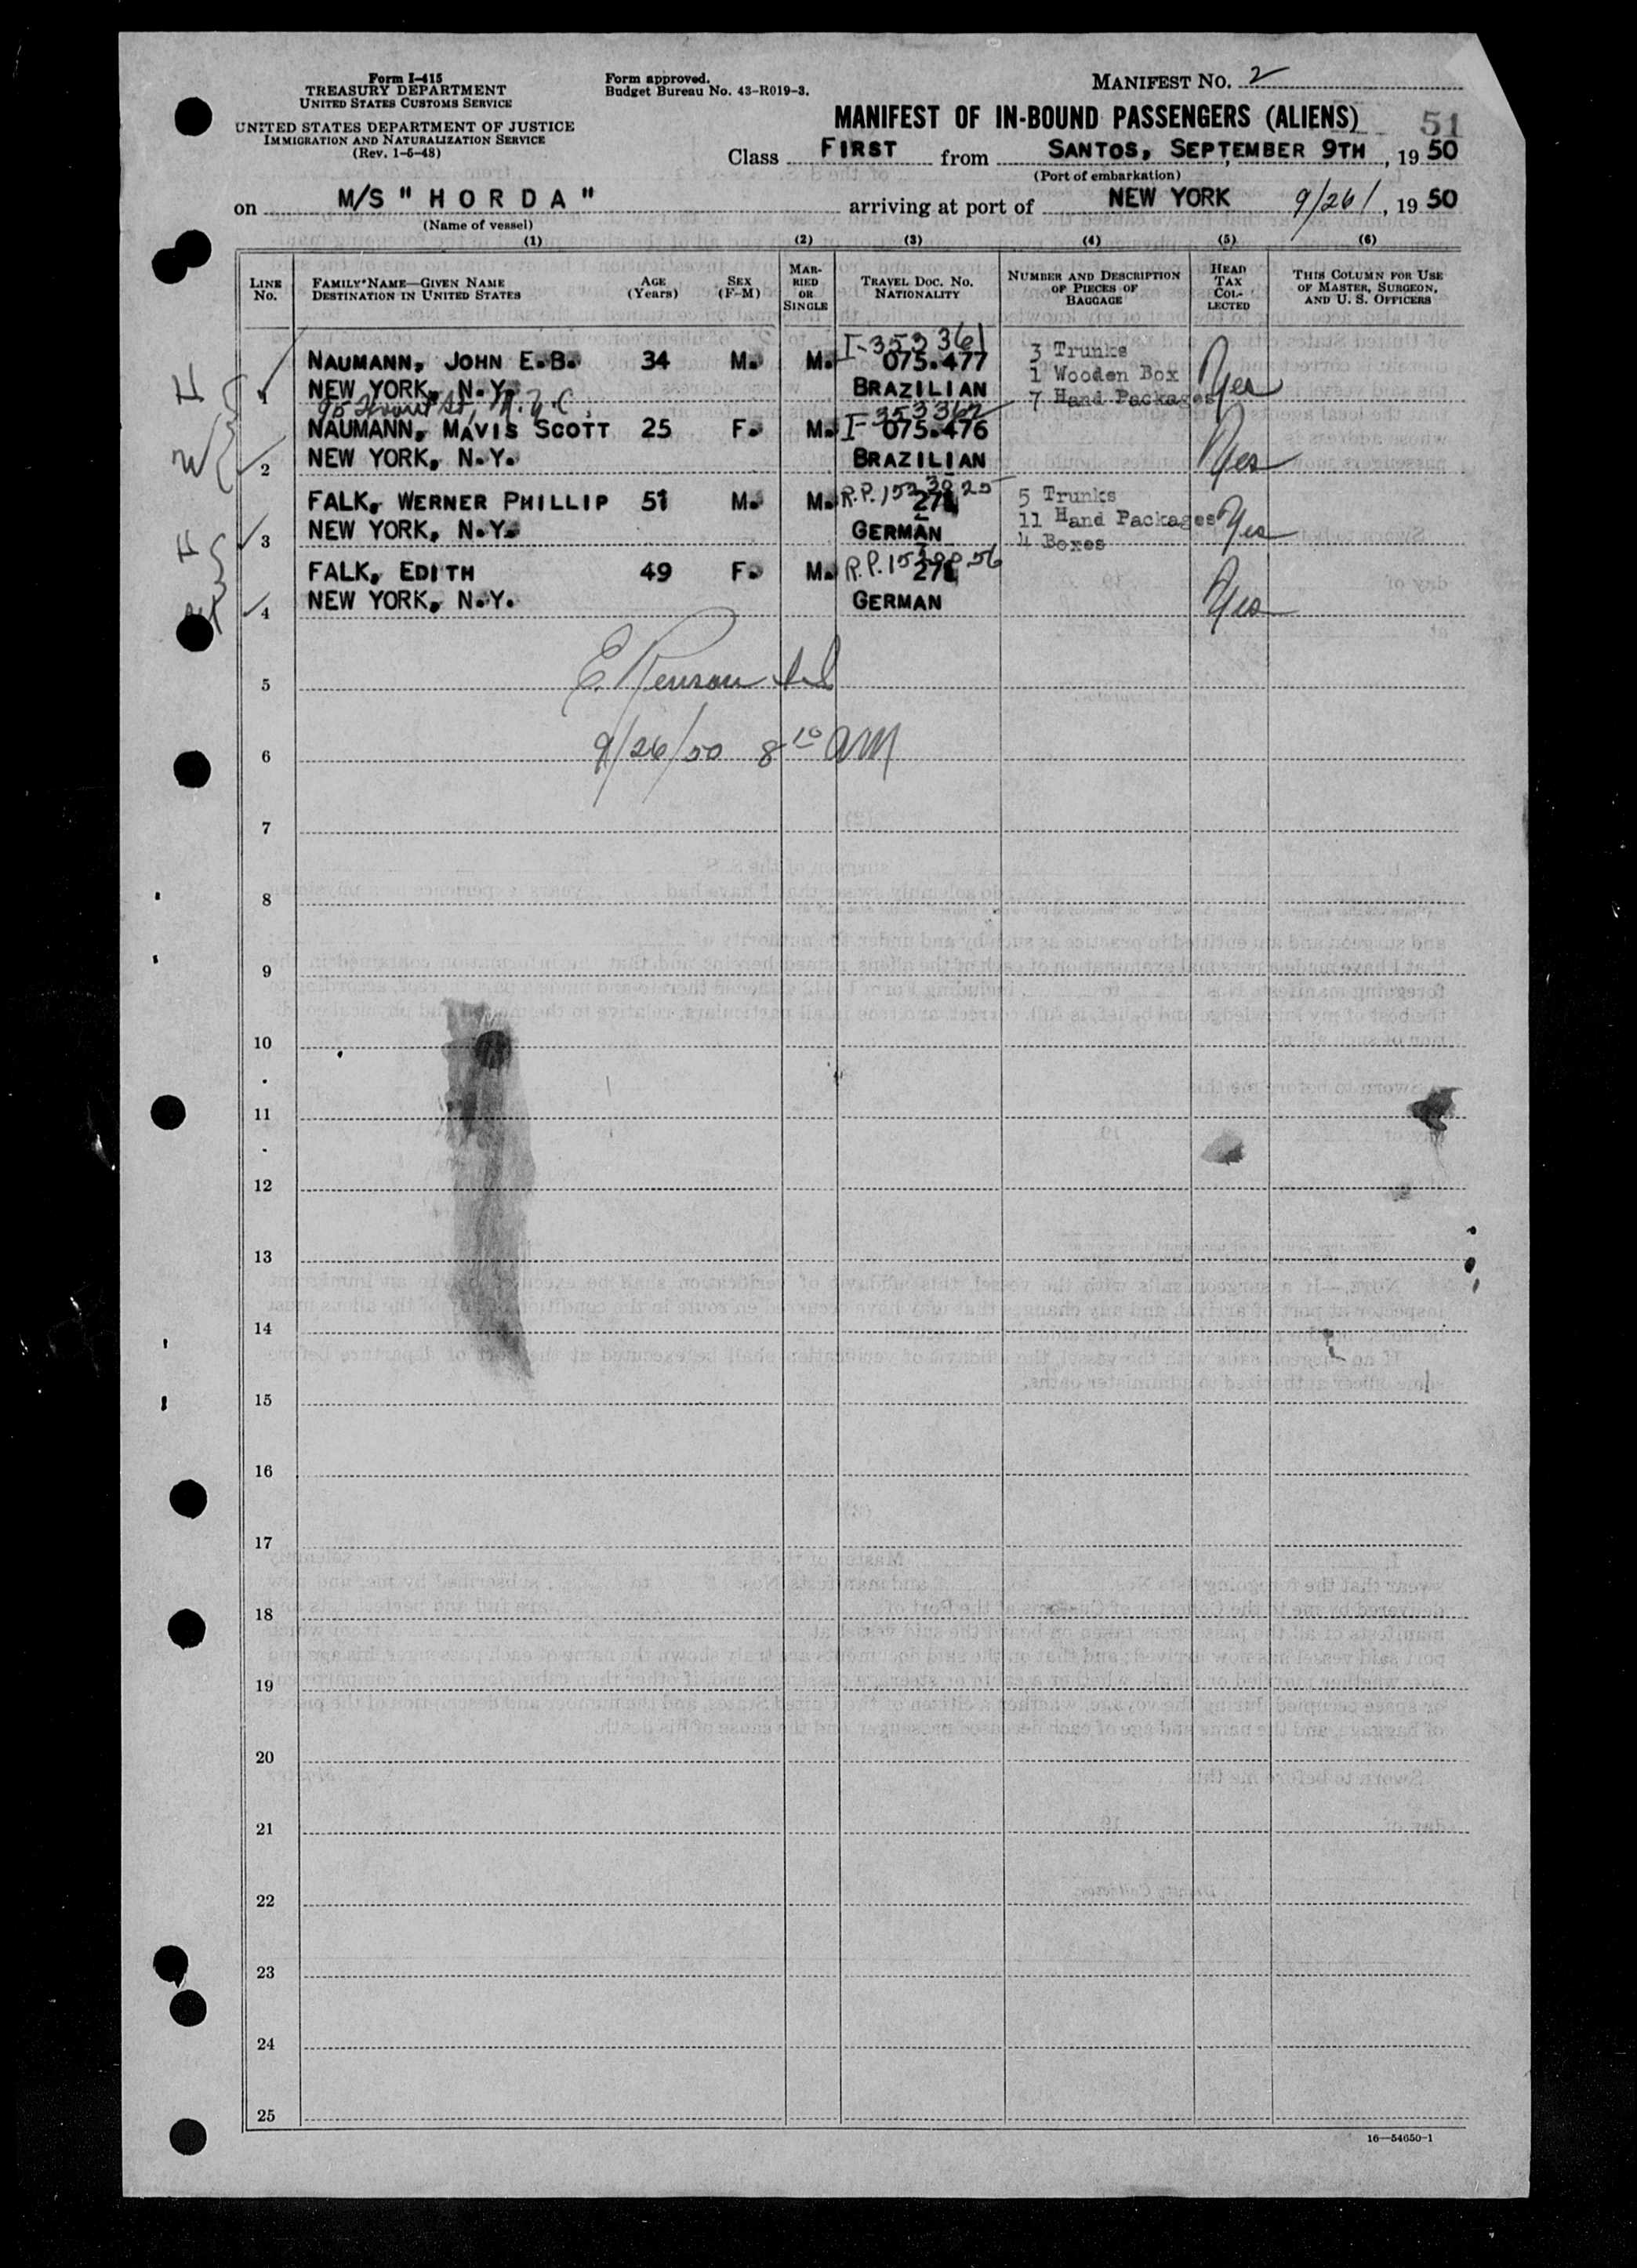 Form I-415
TREASURY DEPARTMENT
UNITED STATES CUSTOMS SERVICE
UNITED STATES DEPARTMENT OF JUSTICE
IMMIGRATION AND NATURALIZATION SERVICE
(Rev. 1-5-48)
Form approved.
Budget Bureau No. 43-R019-3.
MANIFEST NO. 2
MANIFEST OF IN-BOUND PASSENGERS (ALIENS)
51
Class FIRST from SANTOS, SEPTEMBER 9TH, 19 50
(Port of embarkation)
on M/S "HORDA" arriving at port of NEW YORK 9/26/, 19 50
(Name of vessel)
(1) (2) (3) (4) (5) (6)
LINE No. FAMILY NAME—GIVEN NAME DESTINATION IN UNITED STATES AGE (Years) SEX (F-M) MARRIED OR SINGLE TRAVEL DOC. NO. NATIONALITY NUMBER AND DESCRIPTION OF PIECES OF BAGGAGE HEAD TAX COLLECTED THIS COLUMN FOR USE OF MASTER, SURGEON, AND U. S. OFFICERS
I-353361
NAUMANN, JOHN E.B. 34 M. M. 075.477 3 Trunks
1 Wooden Box
1 NEW YORK, N.Y. BRAZILIAN 7 Hand Packages Yes
St, N.Y.C.
I-353362
NAUMANN, MAVIS SCOTT 25 F. M. 075.476
2 NEW YORK, N.Y. BRAZILIAN Yes
FALK, WERNER PHILLIP 51 M. M. R.P. 5 Trunks
11 Hand Packages
3 NEW YORK, N.Y. GERMAN 4 Boxes Yes
FALK, EDITH 49 F. M. R.P.
4 NEW YORK, N.Y. GERMAN Yes
5
6 9/26/50 8 10 AM
7
8
9
10
11
12
13
14
15
16
17
18
19
20
21
22
23
24
25
16—54650-1